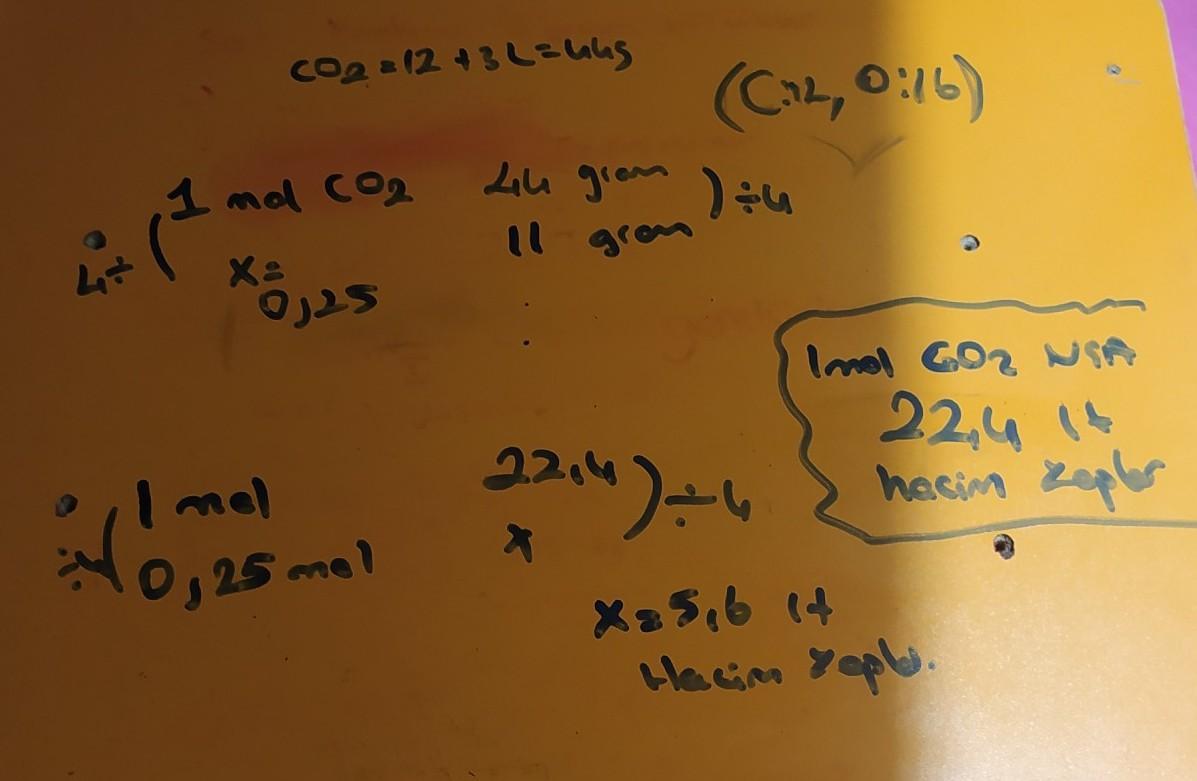 CO2 = 12 + 32 = 44g
(C:12, O:16)
1 mol CO2 44 gram ) ÷4
4÷ ( x= 11 gram
0,25
1 mol CO2 NŞA
22,4 lt
hacim kaplar
1 mol 22,4 ) ÷4
÷4 ( 0,25 mol x
x=5,6 lt
Hacim kaplar.